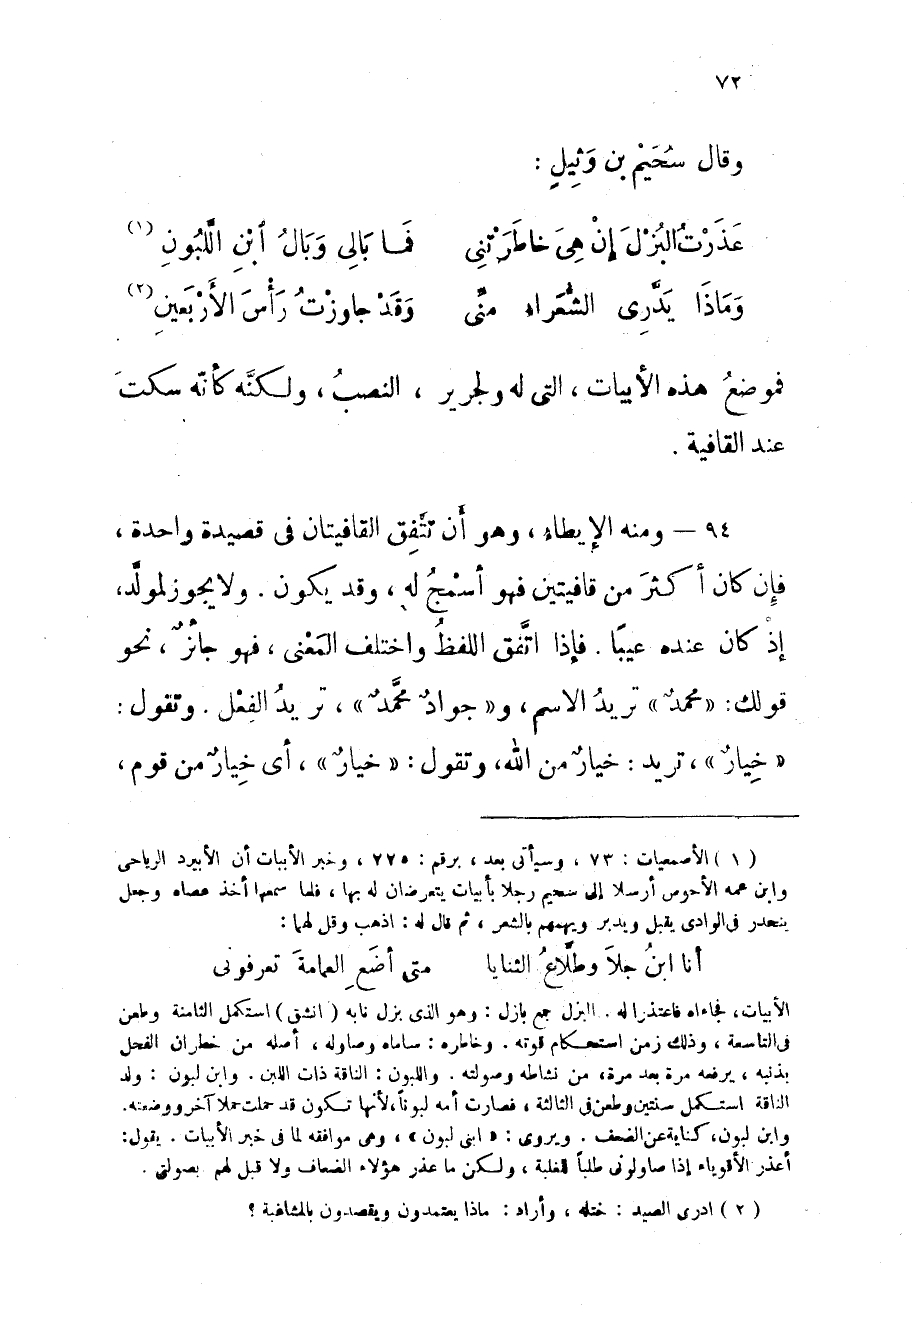 ٧٢
وقال سُحَيْم بن وَثِيلٍ :
عَذَرْتُ البُزْلَ إِنْ هِىَ خاطَرَتْنِى فَمَا بَالِى وَبَالُ ٱبْنِ اللَّبُونِ (١)
وَمَاذَا يَدَّرِى الشُّعَراءِ مِنِّى وَقَدْ جاوزْتُ رَأْسَ الأَرْبَعينِ (٢)
فموضعُ هذه الأبيات ، التى له ولجرير ، النصبُ ، ولكنَّه كأنّه سكتَ
عند القافية .
٩٤ — ومنه الإيطاء ، وهو أَن تتَّفِق القافيتان فى قصيدة واحدة ،
فإِن كان أكثرَ من قافيتين فهو أَسْمجُ له ، وقد يكون . ولا يجوز لمولَّد،
إذْ كان عنده عيبًا . فإذا اتَّفق اللفظُ واختلف المَعْنى ، فهو جائزٌ ، نحو
قولك: «محمدٌ» تريدُ الاسم ، و« جوادٌ محمَّدٌ» ، تريدُ الفِعْل . وتقول :
« خِيارٌ » ، تريد : خيارٌ من الله ، وتقول : « خيارٌ » ، أى خِيارٌ من قوم ،
( ١ ) الأصمعيات : ٧٣ ، وسيأتى بعد ، برقم : ٢٢٥ ، وخبر الأبيات أن الأبيرد الرياحى
وابن عمه الأحوص أرسلا إلى سحيم رجلا بأبيات يتعرضان له بها ، فلما سمعها أخذ عصاه وجعل
ينحدر فى الوادى يقبل ويدبر ويهمهم بالشعر ، ثم قال له : اذهب وقل لهما :
أنا ابنُ جلاَ وطلَّاعُ الثنايا متى أضَعِ العامةَ تعرفونى
الأبيات ، فجاءاه فاعتذرا له . البزل جمع بازل : وهو الذى بزل نابه ( انشق ) استكمل الثامنة وطعن
فى التاسعة ، وذلك زمن استحكام قوته . وخاطره : ساماه وصاوله ، أصله من خطران الفحل
بذنبه ، يرفعه مرة بعد مرة، من نشاطه وصولته . واللبون : الناقة ذات اللبن . وابن لبون : ولد
الناقة استكمل سنتين وطعن فى الثالثة ، فصارت أمه لبوناً، لأنها تكون قد حملت حملا آخر ووضعته.
وابن لبون، كناية عن الضعف . ويروى : « ابنى لبون » ، وهى موافقه لما فى خبر الأبيات . يقول:
أعذر الأقوياء إذا صاولونى طلباً للغلبة ، ولكن ما عذر هؤلاء الضعاف ولا قبل لهم بصولتى .
( ٢ ) ادرى الصيد : ختله ، وأراد : ماذا يعتمدون ويقصدون بالمشاغبة ؟